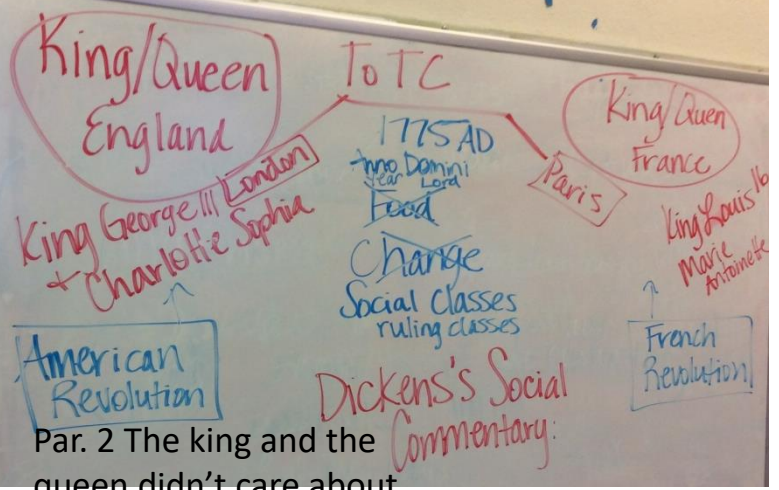 King/Queen
England
King George III
+ Charlotte Sophia
London
American
Revolution
To TC
1775 AD
Anno Domini
year Lord
Food
Change
Social Classes
ruling classes
Dickens's Social
Commentary:
King/Quen
France
Paris
King Louis 16
Marie
Antoinette
French
Revolution
Par. 2 The king and the
queen didn't care about